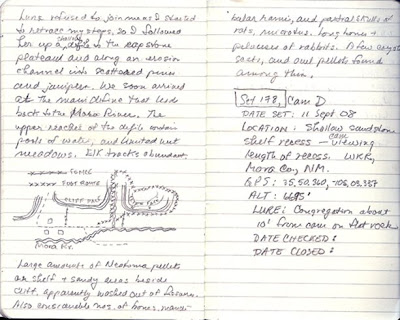 Luna refused to join me as I started
to retrace my steps, so I followed
her up a chimney to the caprock
plateau and along an erosion
channel with scattered pines
and juniper. We soon arrived
at the main defile that leads
back to the Mora River. The
upper reaches of the defile contain
pools of water, and limited wet
meadows. Elk tracks abundant.
FENCE
FOOT BRIDGE
CLIFF FACE
MORA RIV.
Large amounts of Neotoma pellets
on shelf & sandy areas beside
cliff, apparently washed out of fissures.
Also considerable nos. of bones, mainly
and partial skulls of
rats, microtus. Long bones &
pelvises of rabbits. A few coyote
scats, and owl pellets found
among them.
SH 178, Cam D
DATE SET: 11 Sept 08
LOCATION: Shallow sandstone
shelf recess — cam viewing
length of recess. WRR,
Mora Co, NM.
GPS: 35,50,360, -105,03,357
ALT: 6695'
LURE: Congregation about
10' from cam on flat rock
DATE CHECKED:
DATE CLOSED: